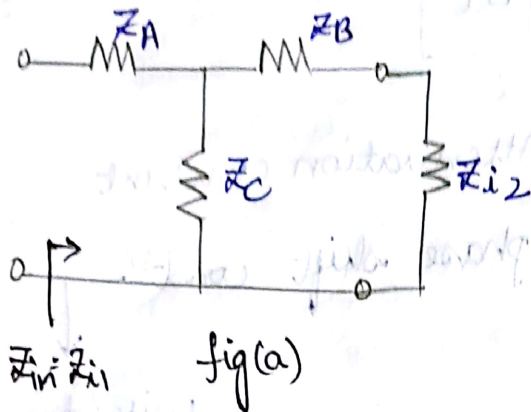 Z_A Z_B
Z_C Z_i2
Z_in = Z_i1 fig(a)